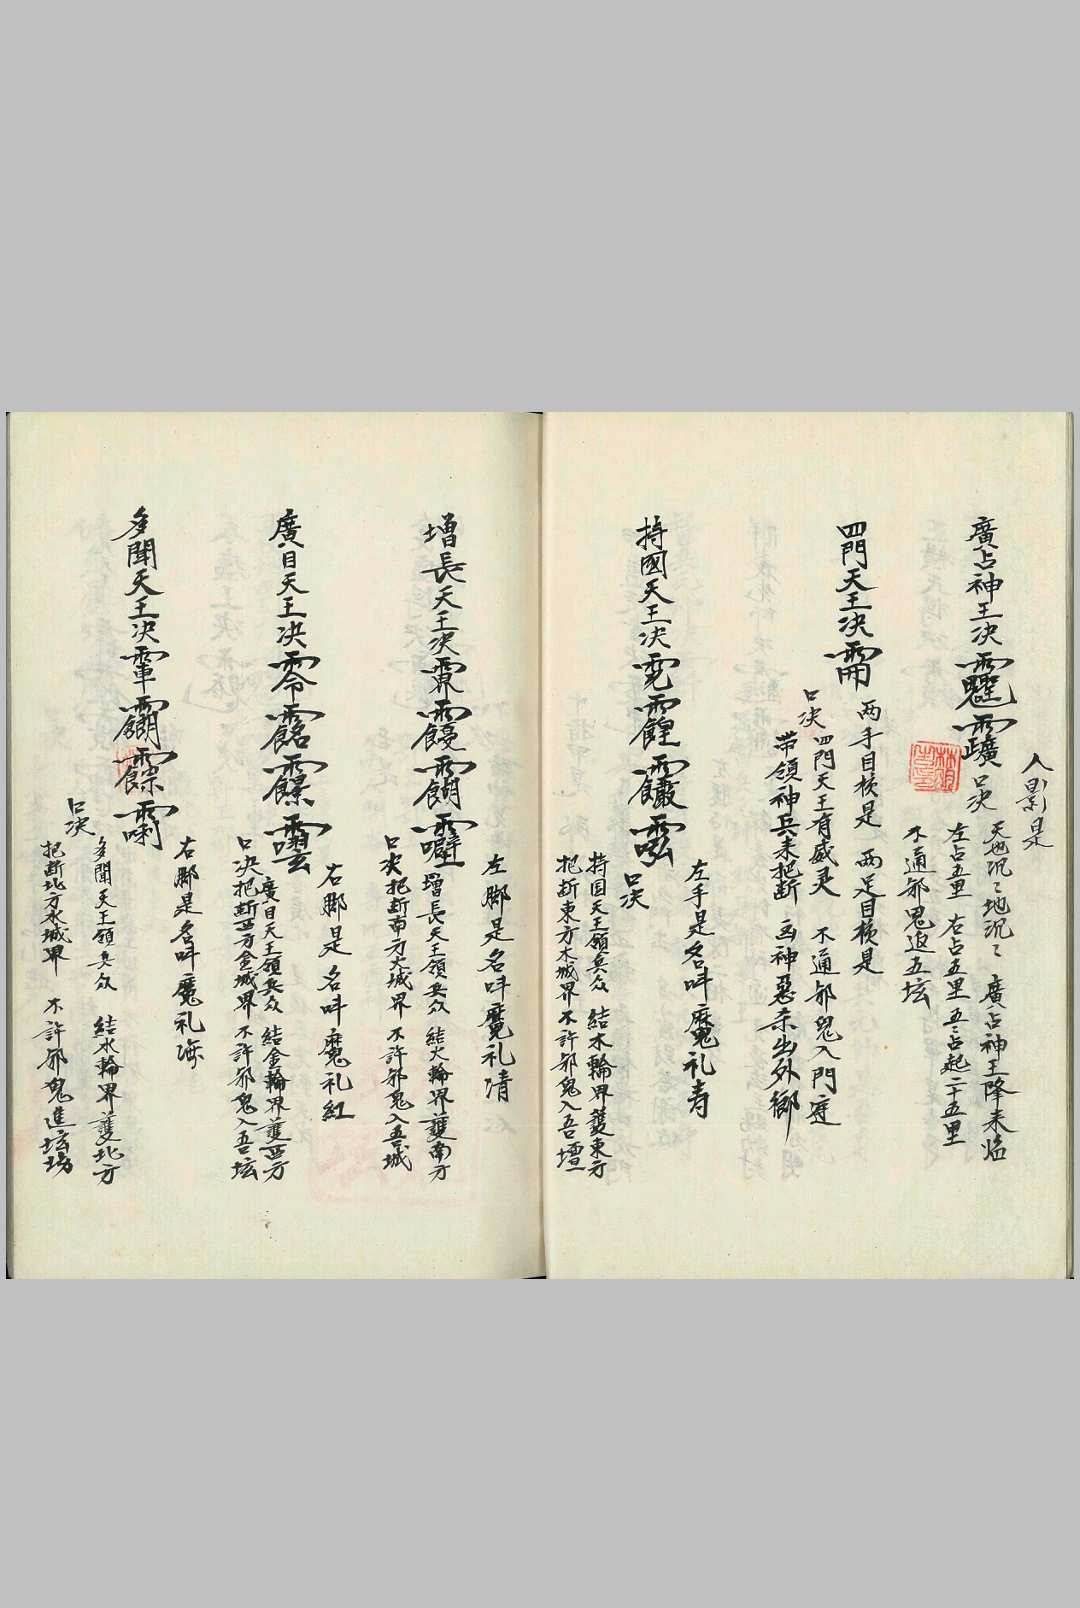 人影是
廣占神王决
口决
天地沉〻地沉〻 廣占神王降来臨
左占五里 右占五里 五〻占起二十五里
不通邪鬼返五坛
四門天王决
两手目核是 两足目核是
口决
四門天王有威灵 不通邪鬼入門庭
带領神兵来把断 凶神惡杀出外鄉
持國天王决
左手是名叫魔礼寿
口决
持国天王領兵众 結木輪界護東方
把断東方木城界 不許邪鬼入吾壇
增長天王决
左脚是名叫魔礼清
口决
增長天王領兵众 結火輪界護南方
把断南方火城界 不許邪鬼入吾城
廣目天王决
右脚是名叫魔礼紅
口决
廣目天王領兵众 結金輪界護西方
把断西方金城界 不許邪鬼入吾坛
多聞天王决
右脚是名叫魔礼海
口决
多聞天王領兵众 結水輪界護北方
把断北方水城界 不許邪鬼進坛場